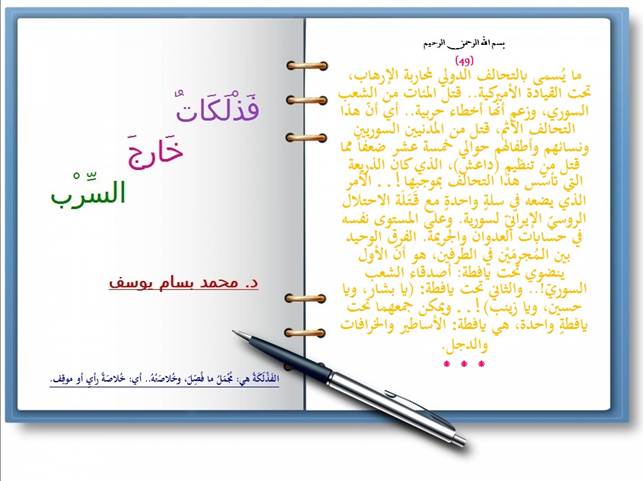 بسم الله الرحمن الرحيم
(49)
ما يُسمى بالتحالف الدولي لمحاربة الإرهاب،
تحت القيادة الأميركية.. قتل المئات من الشعب
السوري، وزعم أنها أخطاء حربية.. أي أنّ هذا
التحالف الآثم، قتل من المدنيين السوريين
ونسائهم وأطفالهم حوالي خمسة عشر ضعفاً مما
قتل من تنظيم (داعش)، الذي كان الذريعة
التي تأسس هذا التحالف بموجبها!.. الأمر
الذي يضعه في سلةٍ واحدةٍ مع قَتَلَة الاحتلال
الروسيّ الإيرانيّ لسورية. وعلى المستوى نفسه
في حسابات العدوان والجريمة. الفرق الوحيد
بين المـُجرمَيْن في الطرفين، هو أن الأول
ينضوي تحت يافطة: أصدقاء الشعب
السوريّ!.. والثاني تحت يافطة: (يا بشار، ويا
حسين، ويا زينب)!.. ويمكن جمعهما تحت
يافطةٍ واحدة، هي يافطة: الأساطير والخرافات
والدجل.
* * *
فَذْلَكَاتٌ
خَارِجَ
السِّرْبِ
د. محمد بسام يوسف
الفَذْلَكَةُ هيَ: مُجْمَلُ ما فُصِّلَ، وخُلاصَتُهُ.. أي: خُلاصَةُ رأيٍ أو موقِف.